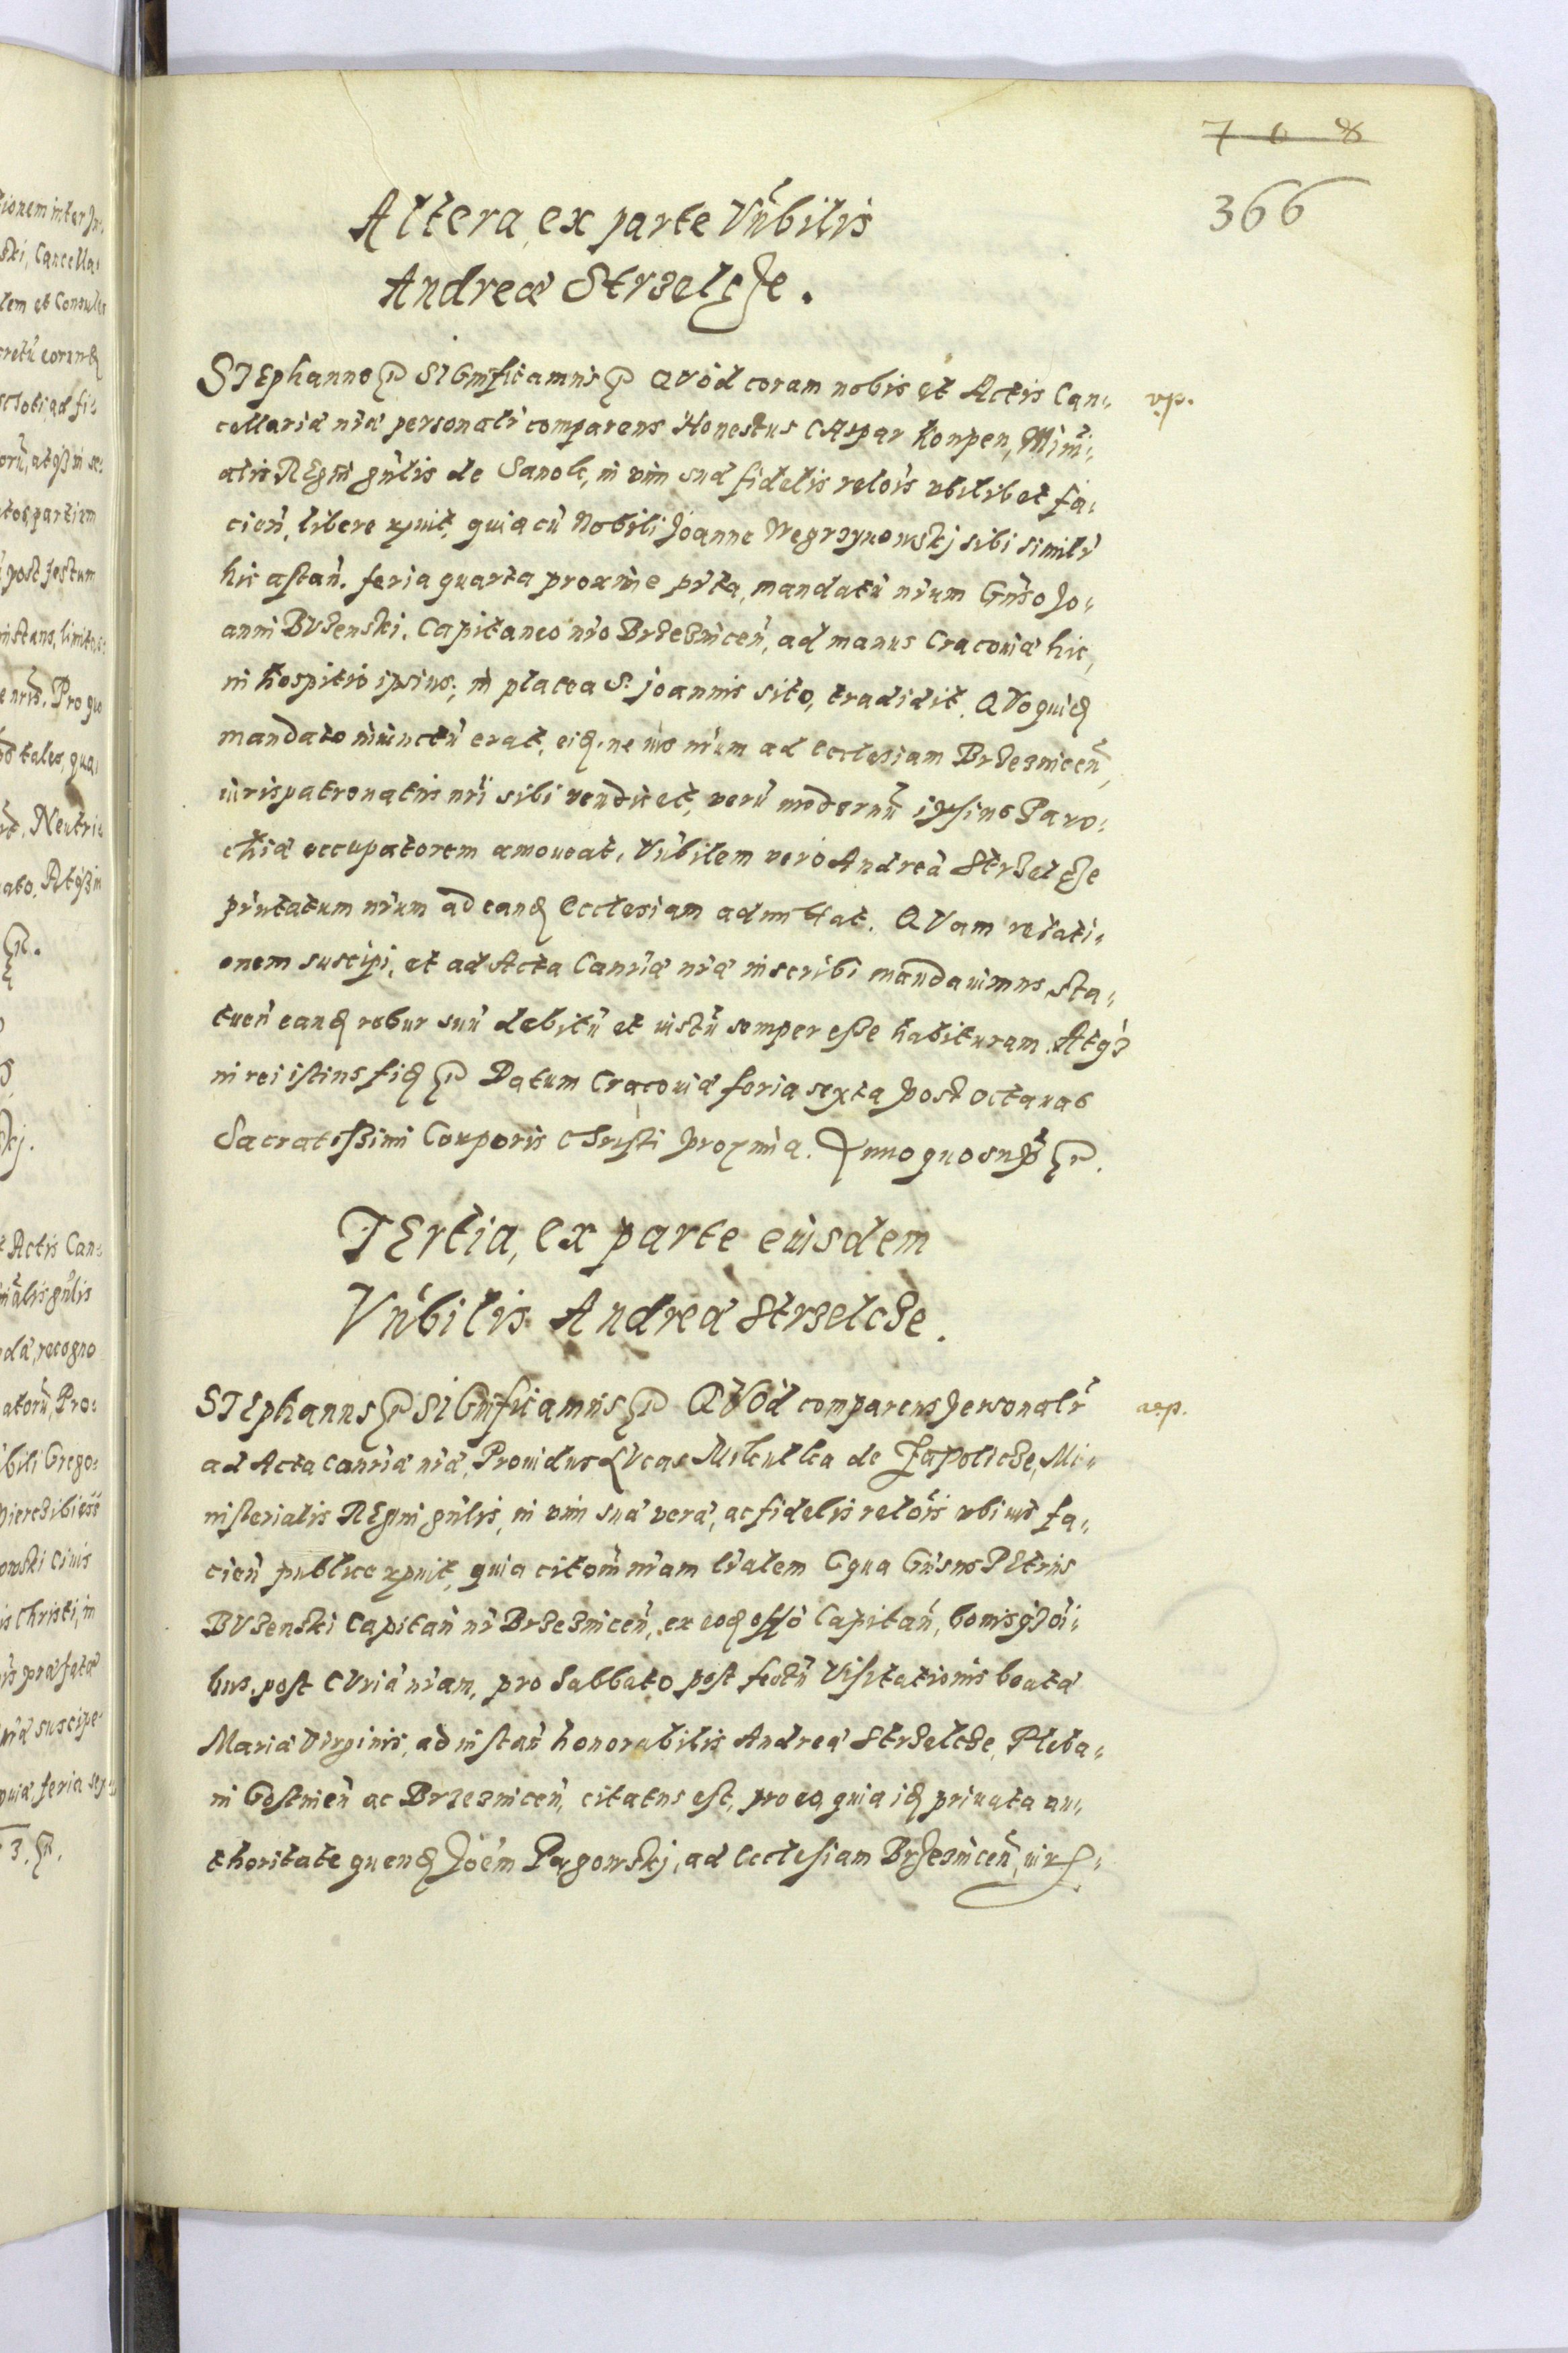 708
366
Altera, ex parte Vńbilis
Andreæ Strzelcze.
STEphannus SIGnificamus QVod coram nobis et Actis Can-
cellariæ nr̃æ personalr̃ comparens Honestus CAspar Konpen, Minr̃i-
alis REgni gńlis de Sanok, in vim suæ fidelis reloĩs vbilibet fa-
cień, libere rẽuit, quia cũ Nobili Joanne Wegrzynowskj sibi similr̃
hic astań. feria quarta proxime prr̃ta, mandatũ nr̃um Gńso Jo-
anni BVzenski, Capitaneo nr̃o Brzezniceń, ad manus Cracouiæ hic,
in hospitio ipsius, in platea S. Joannis sito, tradidit. QVo quidẽ
mandato iniunctũ erat, eidẽ ne ius nr̃um ad ecclesiam Brzezniceń,
iurispatronatus nr̃i sibi vendicet, verũ modernũ ipsius Paro-
chiæ occupatorem amoueat, Vńbilem vero Andreã Strzelcze
pr̃ntatum nr̃um ad eandẽ Ecclesiam admittat. QVam relati-
onem suscipi, et ad Acta Canr̃iæ nr̃æ inscribi mandauimus, sta-
tueń eandẽ robur suũ debitũ et iustũ semper esse habituram. Atqз
in rei istius fidẽ Datum Cracouiæ feria sexta post octauas
Sacratissimi Corporis Christi proxima. Anno quo supr̃
TErtia, ex parte eiusdem
Vńbilis Andreæ Strzelcze.
STEphannus SIGnificamus QVOd comparens personalr̃
ad Acta Canr̃iæ nr̃æ, Prouidus LVcas Mikulka de Zapolicze, Mi-
nisterialis REgni gńlis, in vim suæ veræ, ac fidelis reloĩs vbi uis fa-
cień publice rẽuit, quia citoẽm nr̃am lr̃alem Cqua Gńsus PEtrus
BVzenski Capitań nr̃ Brzezniceń, ex eodẽ offõ Capitań, bonisqз oĩ-
bus, post CVriã nr̃am, pro Sabbato post festũ Visitationis beatæ
Mariæ Virginis, ad instań honorabilis Andreæ Strzelcze, Pleba-
ni Gostnień ac Brzezniceń, citatus est, pro eo, quia idẽ priuata au-
thoritate quendẽ Joẽm Pągowskj, ad Ecclesiam Brzezniceń,